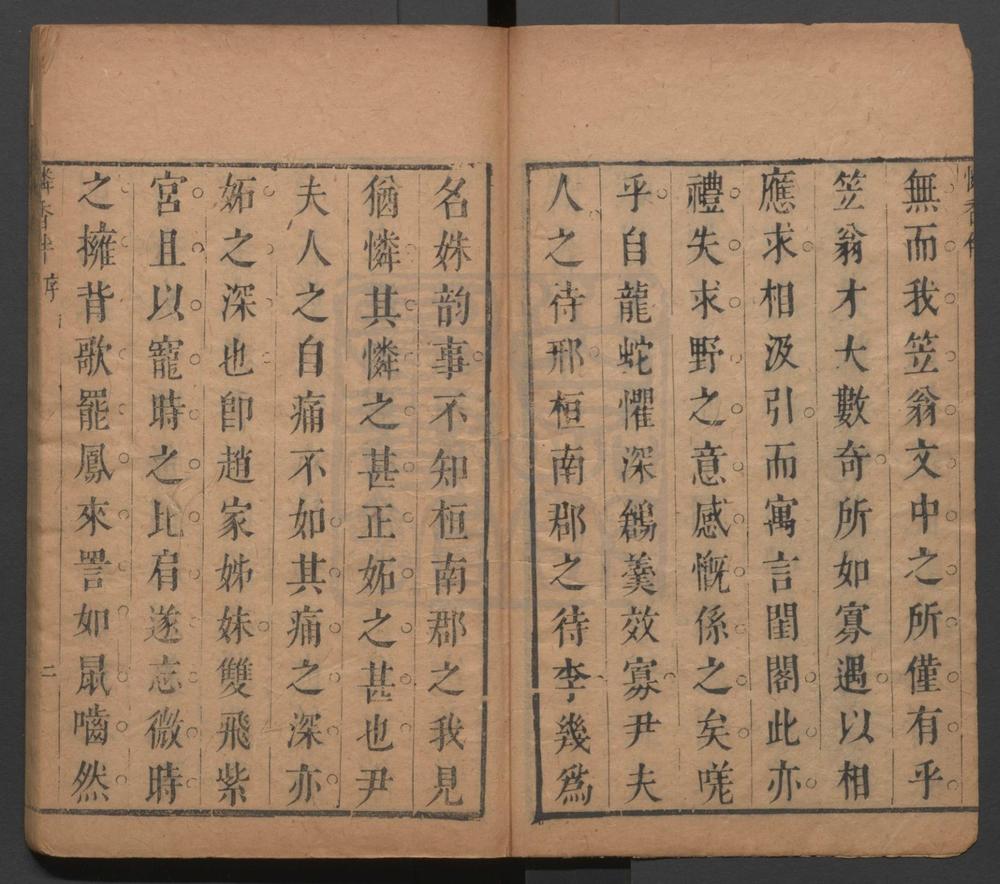 無而我笠翁文中之所僅有乎
笠翁才大數奇所如寡遇以相
應求相汲引而寓言閨閣此亦
禮失求野之意感慨係之矣嗟
乎自龍蛇懼深鶬羹效寡尹夫
人之待邢桓南郡之待李幾爲
名姝韵事不知桓南郡之我見
猶憐其憐之甚正妬之甚也尹
夫人之自痛不如其痛之深亦
妬之深也卽趙家姊妹雙飛紫
宮且以寵時之比肩遂忘微時
之擁背歌罷鳳來詈如鼠嚙然
憐香伴 序 二